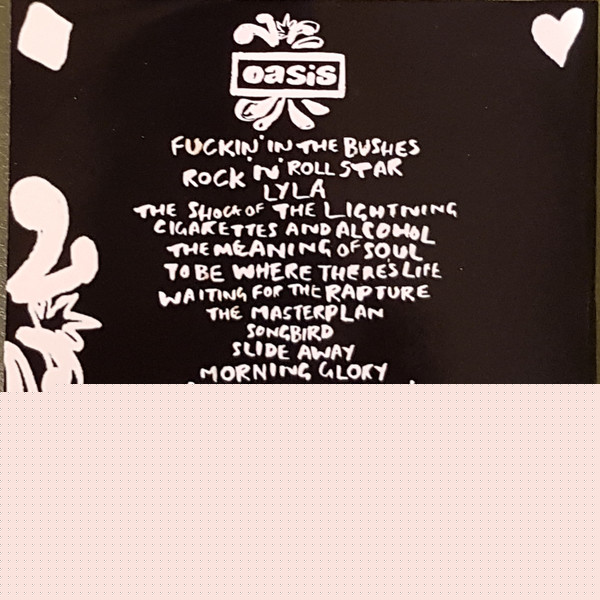 oasis
FUCKIN' IN THE BUSHES
ROCK 'N' ROLL STAR
LYLA
THE SHOCK OF THE LIGHTNING
CIGARETTES AND ALCOHOL
THE MEANING OF SOUL
TO BE WHERE THERE'S LIFE
WAITING FOR THE RAPTURE
THE MASTERPLAN
SONGBIRD
SLIDE AWAY
MORNING GLORY